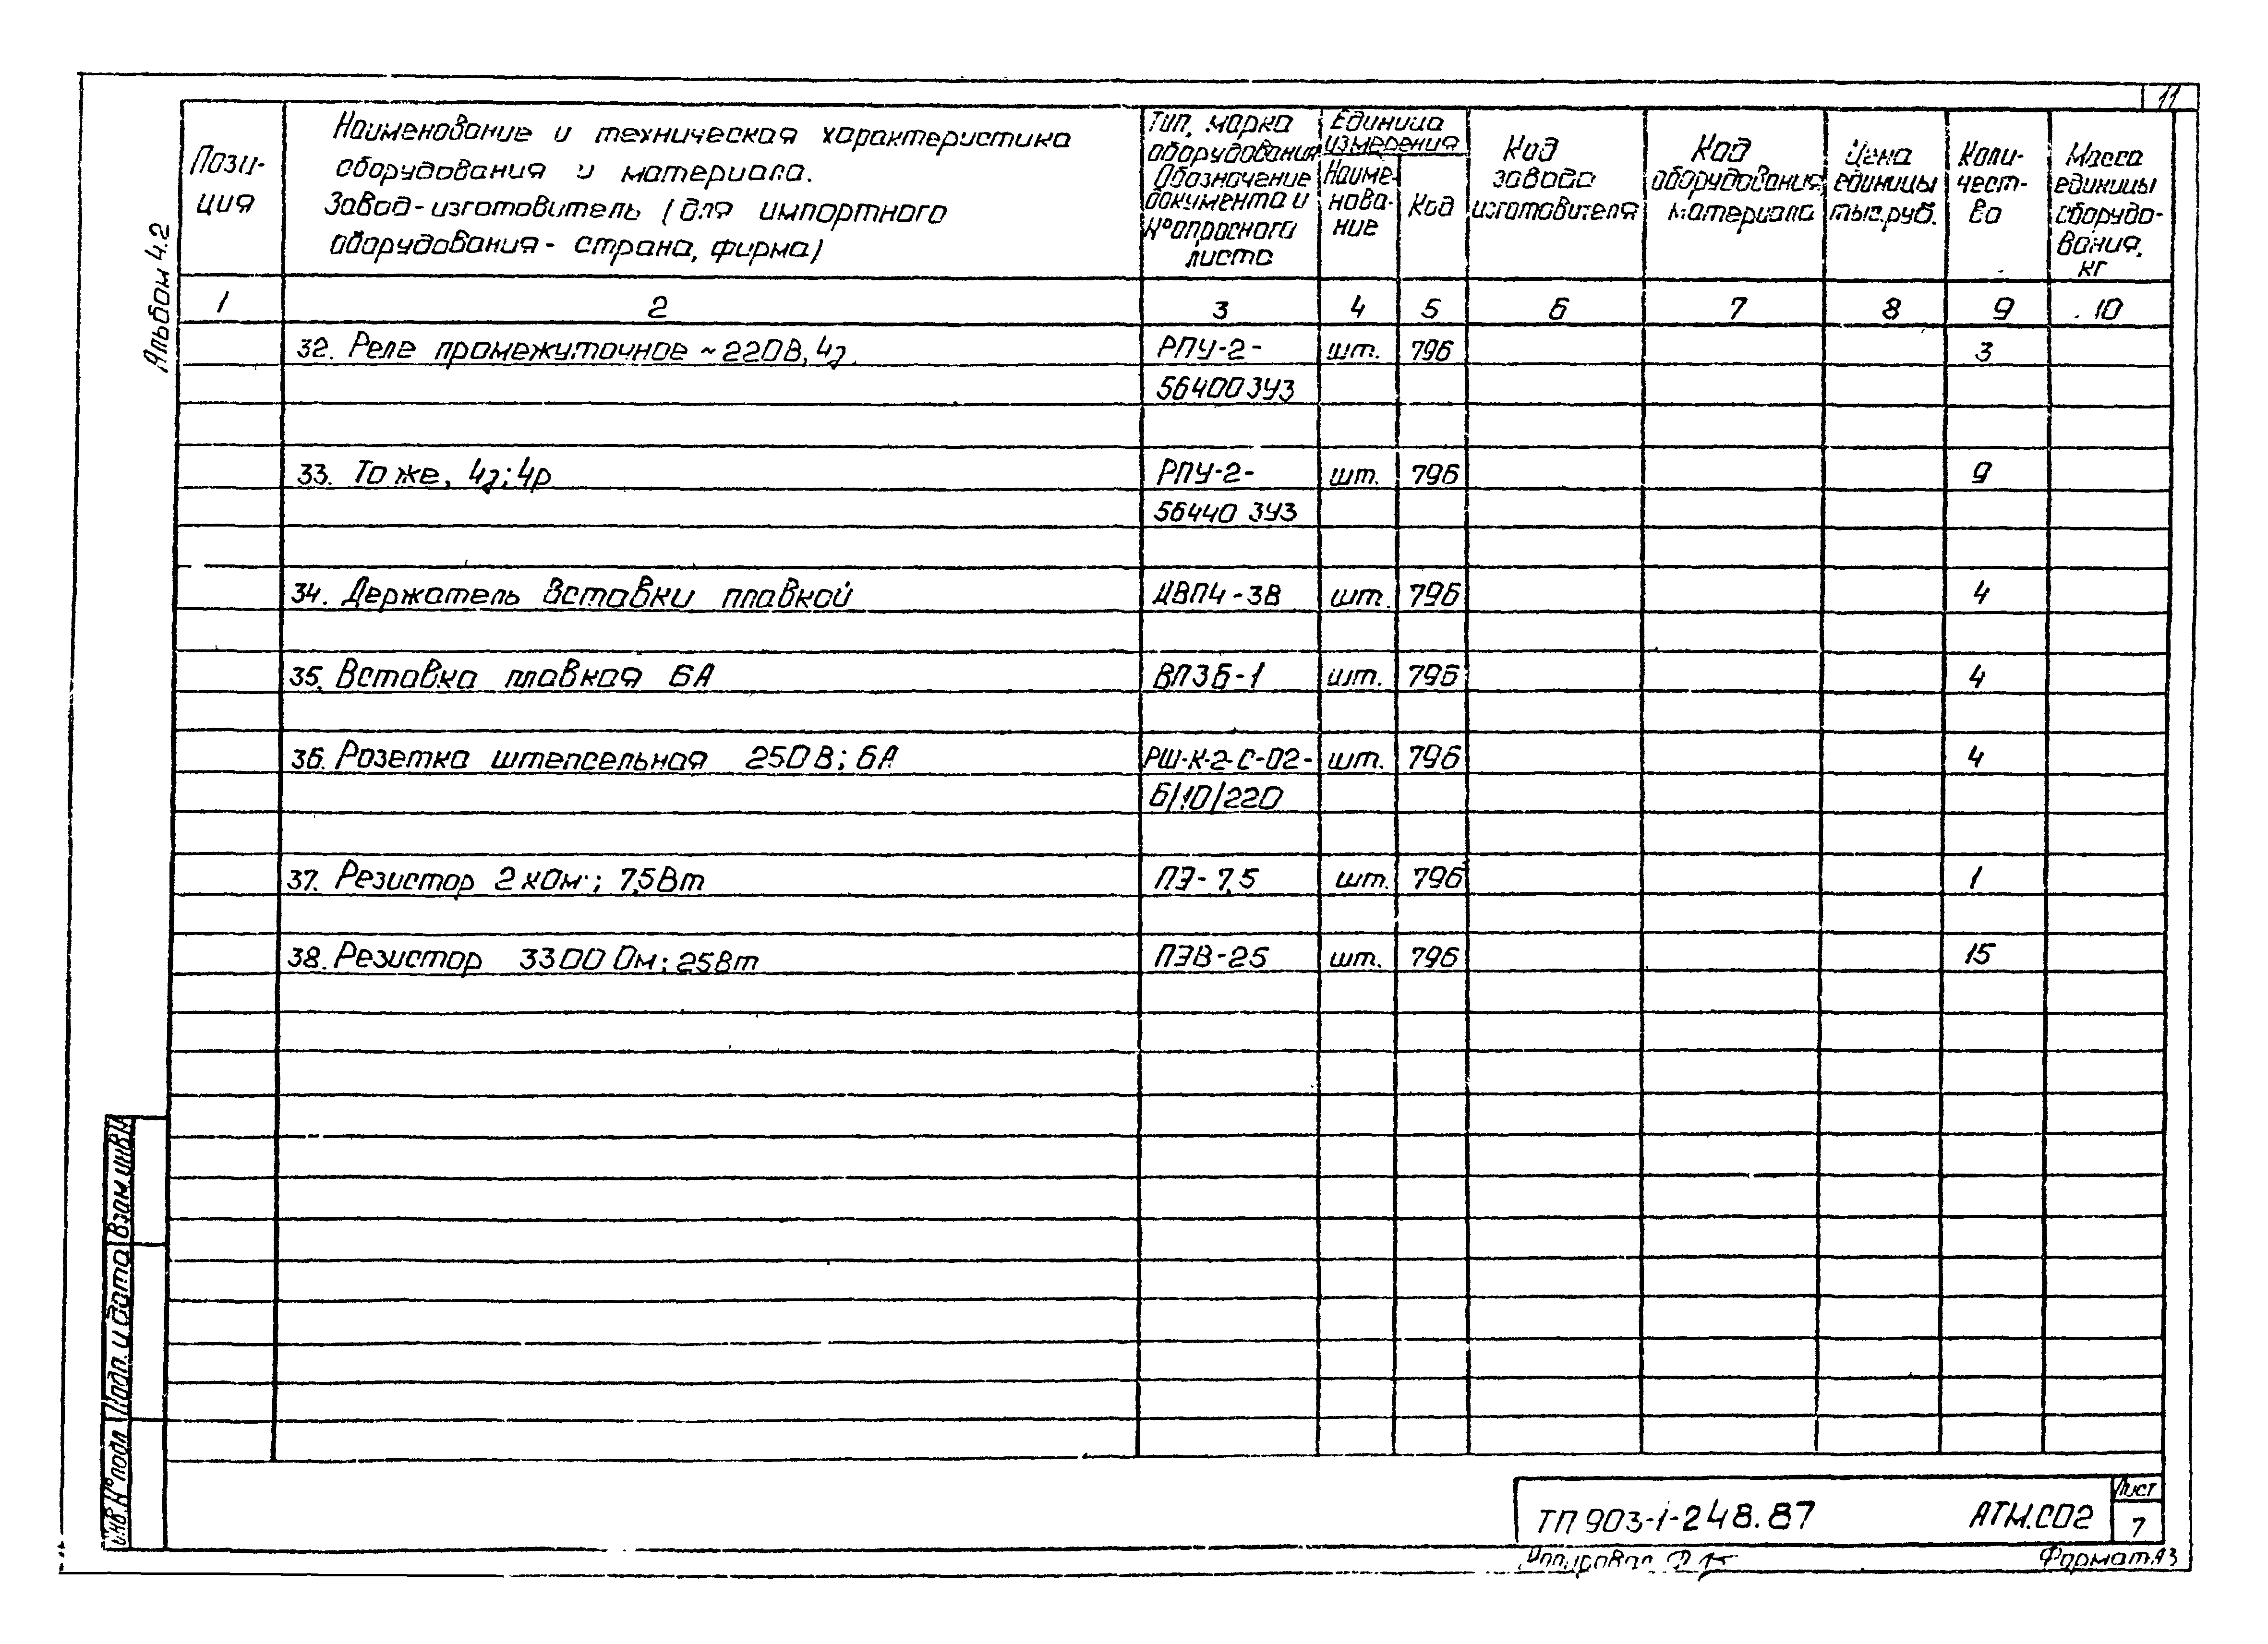 11
Альбом 4.2
Пози-
ция
Наименование и техническая характеристика
оборудования и материала.
Завод-изготовитель (для импортного
оборудования- страна, фирма)
Тип, марка
оборудования
Обозначение
документа и
№ опросного
листа
Единица
измерения
Наиме-
нова-
ние
Код
Код
завода
изготовителя
Код
оборудования
материала
Цена
единицы
тыс.руб.
Коли-
чест-
во
Масса
единицы
оборудо-
вания,
кг
1 2 3 4 5 6 7 8 9 10
32. Реле промежуточное ~220В, 4з РПУ-2- шт. 796 3
56400 3У3
33. То же, 4з; 4р РПУ-2- шт. 796 9
56440 3У3
34. Держатель вставки плавкой ДВП4-3В шт. 796 4
35. Вставка плавкая 6А ВП3Б-1 шт. 796 4
36. Розетка штепсельная 250В; 6А РШ-К-2-С-02- шт. 796 4
6/10/220
37. Резистор 2кОм; 7,5Вт ПЭ-7,5 шт. 796 1
38. Резистор 3300 Ом; 25Вт ПЭВ-25 шт. 796 15
Взам.инв.№
Подп. и дата
Инв.№подл
ТП 903-1-248.87 АТМ.СО2
Лист
7
Копировал
Формат А3